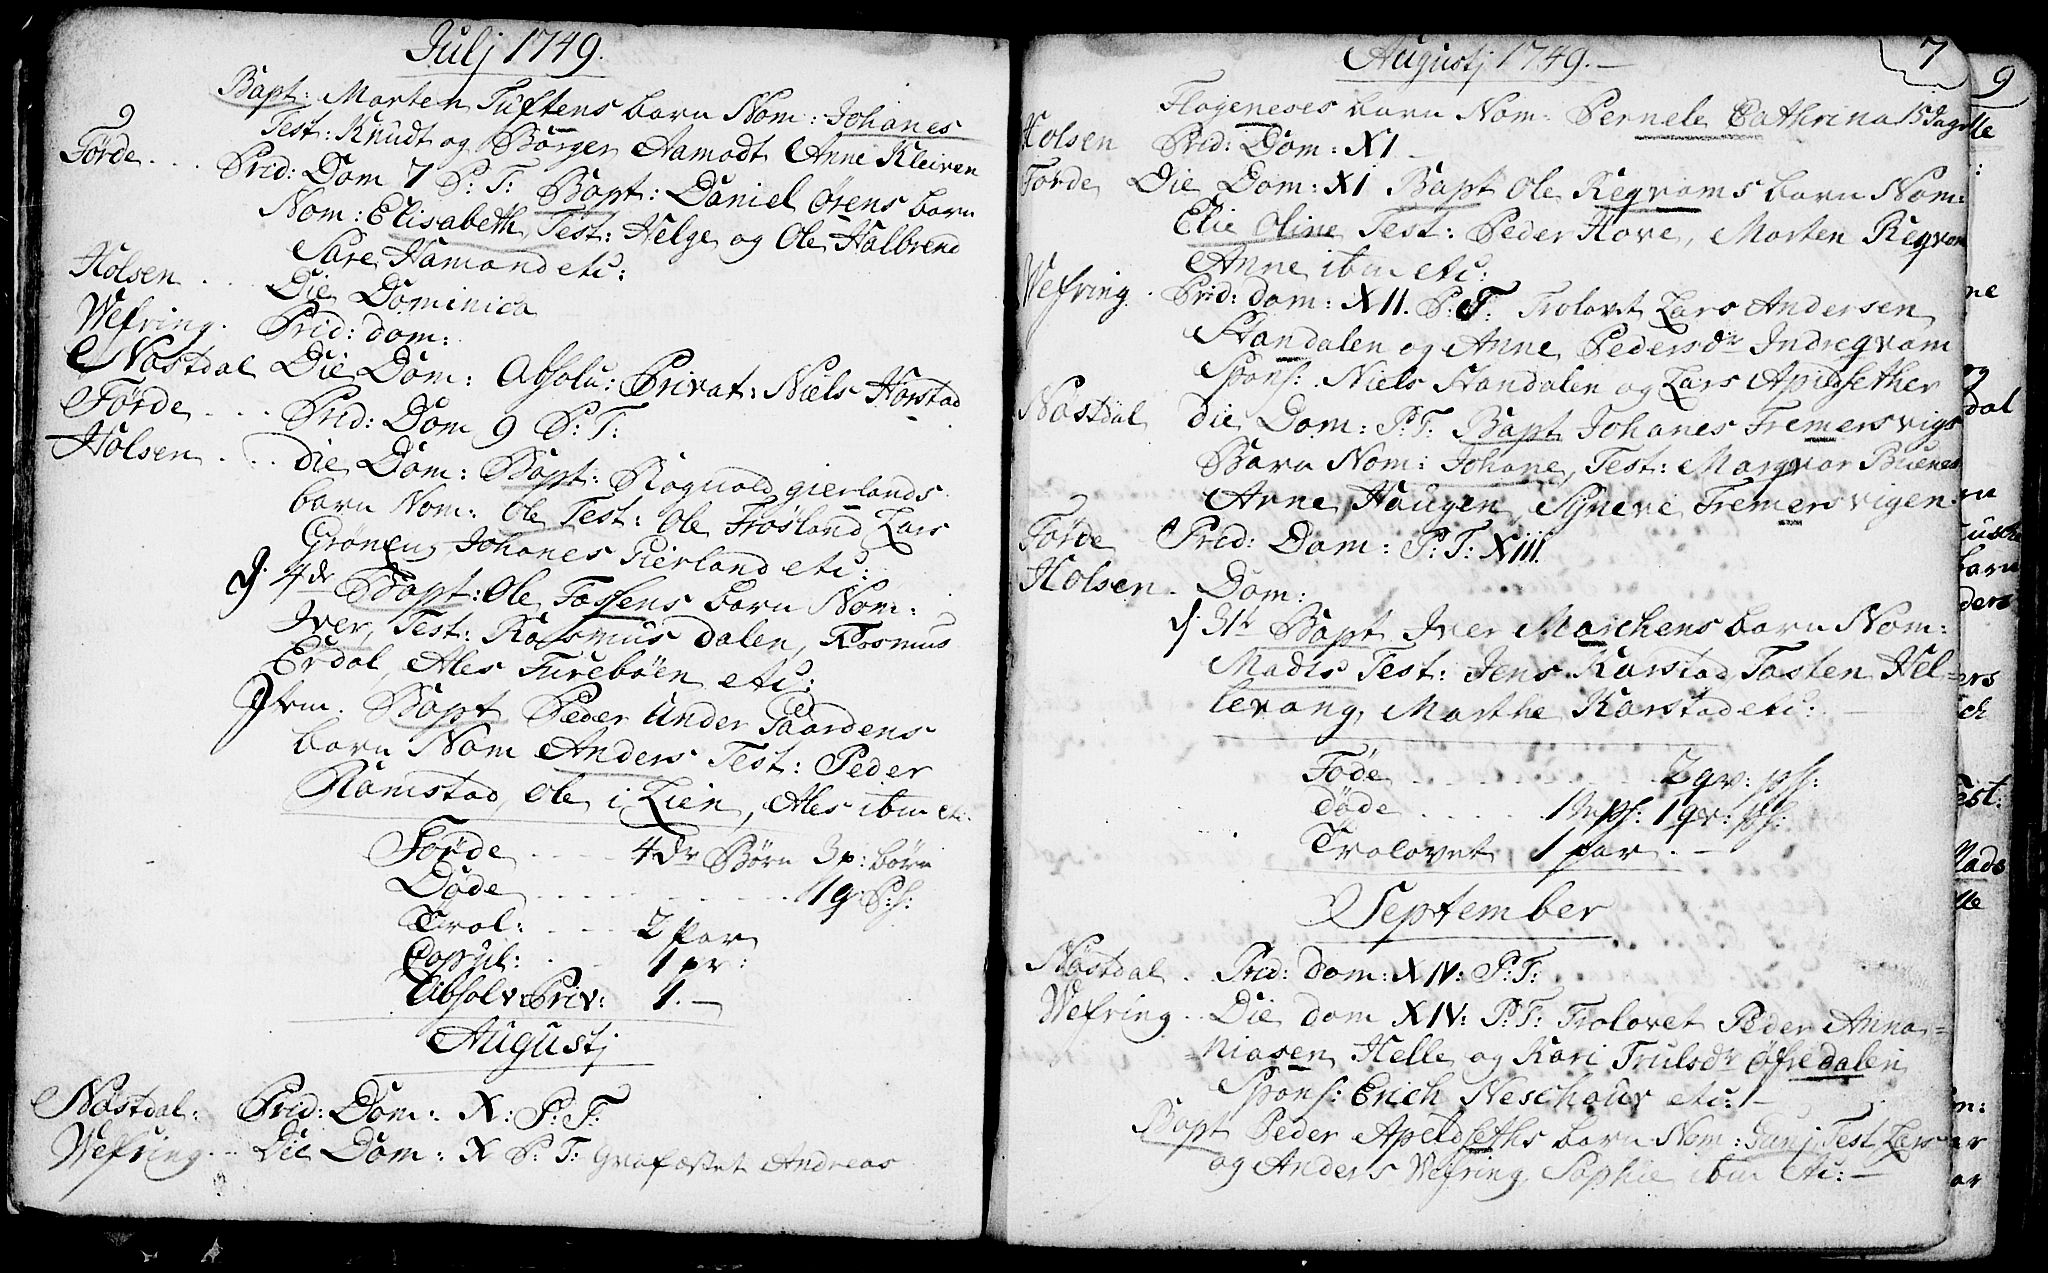 Julj 1749.
Bapt: Morten Tuftens barn Nom: Johanes
Test: Knudt og Börger Aamodt Anne Kleiven
Förde. . . Prid: Dom 7 P: T: Bapt: Daniel Örens barn
Nom: Elisabeth, Test: Helge og Ole Halbrend
Sare Hamand etc:
Holsen . . Die Dominica
Wefring. Prid: dom:
Nöstdal Die Dom: Absolu: Privat: Niels Horstad
Förde . . . Prid: Dom 9 P: T:
Holsen . . . Die Dom: Bapt: Rognald gierlands
barn Nom: Ole Test: Ole Fröiland Lars
Grönen, Johanes Gierland etc:
J. 4de Bapt: Ole Fossens barn Nom:
Iver, Test: Rasmus dalen, Rasmus
Erdal, Ales Fureböen etc:
J Bapt Peder Under Gaardens
barn Nom Anders Test: Peder
Ramstad, Ole i Lien, Ales ibm etc.
Förde . . . . 4 Dr Börn 3 p: börn
Döde . . . . . . . . . 1 q P:s:
Trol: . . . . 2 par
Copul: . . 1 pr:
Absolv: Priv: 1. —
Augustj
Nöstdal: Prid: Dom. X: P: T:
Wefring. . Die Dom: X P: T: Grafæstet Andreas
Augustj 1749. — 7
Flogeneses barn Nom: Pernele Cathrina
Holsen Prid: Dom: XI
Förde Die Dom: XI Bapt Ole Reqvams barn Nom:
Elie Oline Test: Peder Hove, Morten Reqvam
Anne ibm etc:
Wefring. Prid: dom: XII. P: T: Trolovet Lars Andersen
Standalen og Anne Pedersdr Indreqvam
Spons: Niels Standalen og Lars Apeldsether
Nöstdal Die Dom: P: T: Bapt Johanes Fremersvigs
Barn Nom: Johane, Test: Marqvar
Arne Haugen, Signeve Fremersvigen:
Förde Prid: Dom: P: T: XIII.
Holsen. Dom:
J. 31t Bapt Iver Moschens barn Nom:
Madis Test: Jens Karstad Tosten Hel=
levang, Marthe Karstad etc: —
Föde . . . . . . . . . 2 qv: ps:
döde . . . . . 1 M ps: 1 qv: ps:
Trolovet 1 par. —
September
Nöstdal . Prid: dom: XIV: P: T:
Wefring . . Die dom XIV: P: T: Trolovet Peder Anna=
=niasen Helle og Kari Trulsdr Öfredalen
Spons: Erich Neschour etc: —
Bapt Peder Apeldseths barn Nom: Gunj Test Lars
og Anders Wefring, Sophie ibm etc: —
9